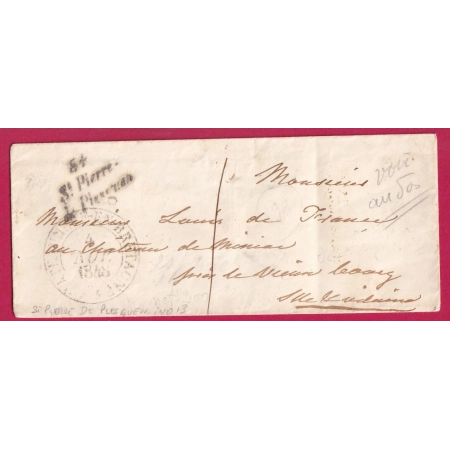 34
St Pierre-
de Plesguen
AOU
1848
Monsieur
Monsieur Louis de France
au Chateau de Miniac
près de Vieux bourg
Ille & vilaine
voir
au dos
St PIERRE DE PLESGUEN IND 13